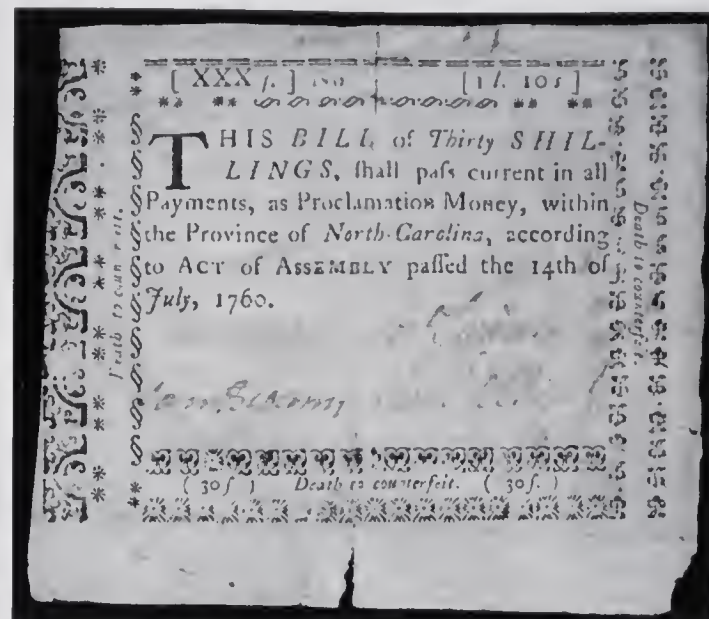 [ XXX ſ. ] [1 l. 10 s]
THIS BILL of Thirty SHIL-
LINGS, ſhall paſs current in all
Payments, as Proclamation Money, within
the Province of North-Carolina, according
to ACT of ASSEMBLY paſſed the 14th of
July, 1760.
( 30 ſ ) Death to counterfeit. ( 30 ſ. )
Death to counterfeit.
Death to counterfeit.